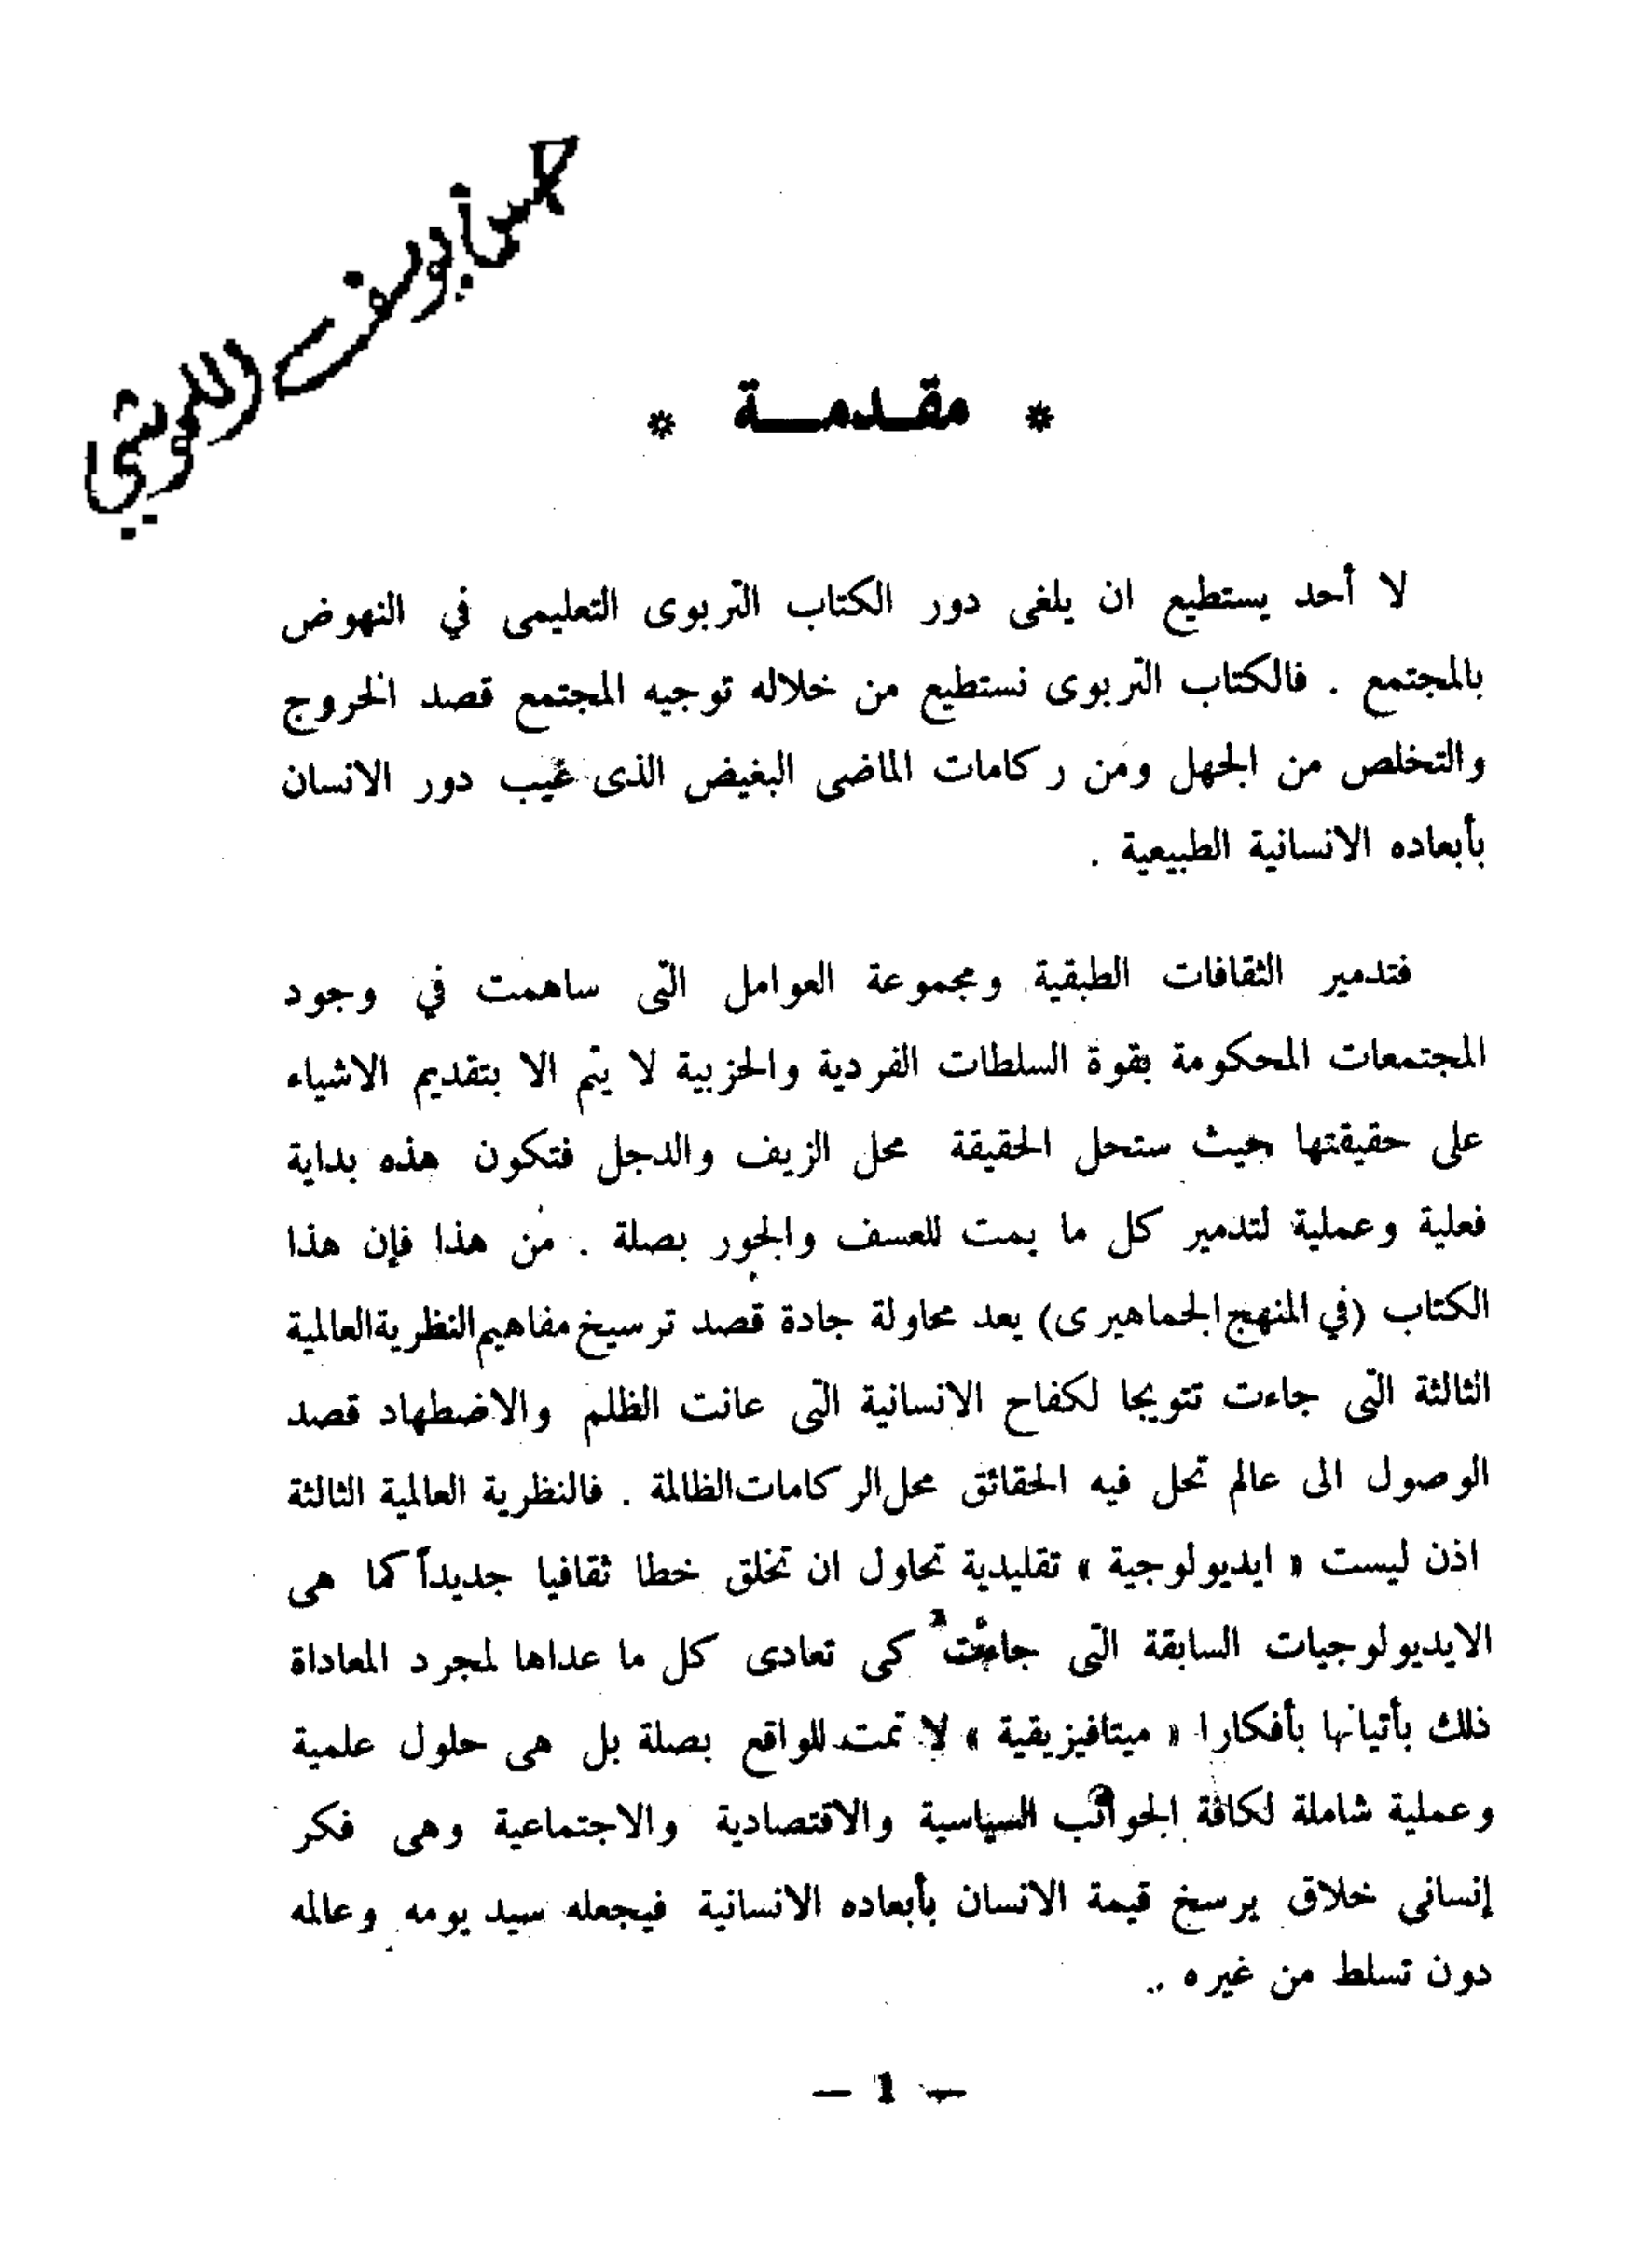 * مقدمة *
لا أحد يستطيع ان يلغى دور الكتاب التربوى التعليمى في النهوض
بالمجتمع . فالكتاب التربوى نستطيع من خلاله توجيه المجتمع قصد الخروج
والتخلص من الجهل ومن ركامات الماضى البغيض الذى غيب دور الانسان
بأبعاده الانسانية الطبيعية .
فتدمير الثقافات الطبقية ومجموعة العوامل التى ساهمت في وجود
المجتمعات المحكومة بقوة السلطات الفردية والحزبية لا يتم الا بتقديم الاشياء
على حقيقتها حيث ستحل الحقيقة محل الزيف والدجل فتكون هذه بداية
فعلية وعملية لتدمير كل ما يمت للعسف والجور بصلة . من هذا فإن هذا
الكتاب (في المنهج الجماهيرى) يعد محاولة جادة قصد ترسيخ مفاهيم النظرية العالمية
الثالثة التى جاءت تتويجا لكفاح الانسانية التى عانت الظلم والاضطهاد قصد
الوصول الى عالم تحل فيه الحقائق محل الركامات الظالمة . فالنظرية العالمية الثالثة
اذن ليست « ايديولوجية » تقليدية تحاول ان تخلق خطا ثقافيا جديداً كما هى
الايديولوجيات السابقة التى جاءت كى تعادى كل ما عداها لمجرد المعاداة
ذلك بأتيانها بأفكارا « ميتافيزيقية » لا تمت للواقع بصلة بل هى حلول علمية
وعملية شاملة لكافة الجوانب السياسية والاقتصادية والاجتماعية وهى فكر
إنسانى خلاق يرسخ قيمة الانسان بأبعاده الانسانية فيجعله سيد يومه وعالمه
دون تسلط من غيره ..
— 1 —